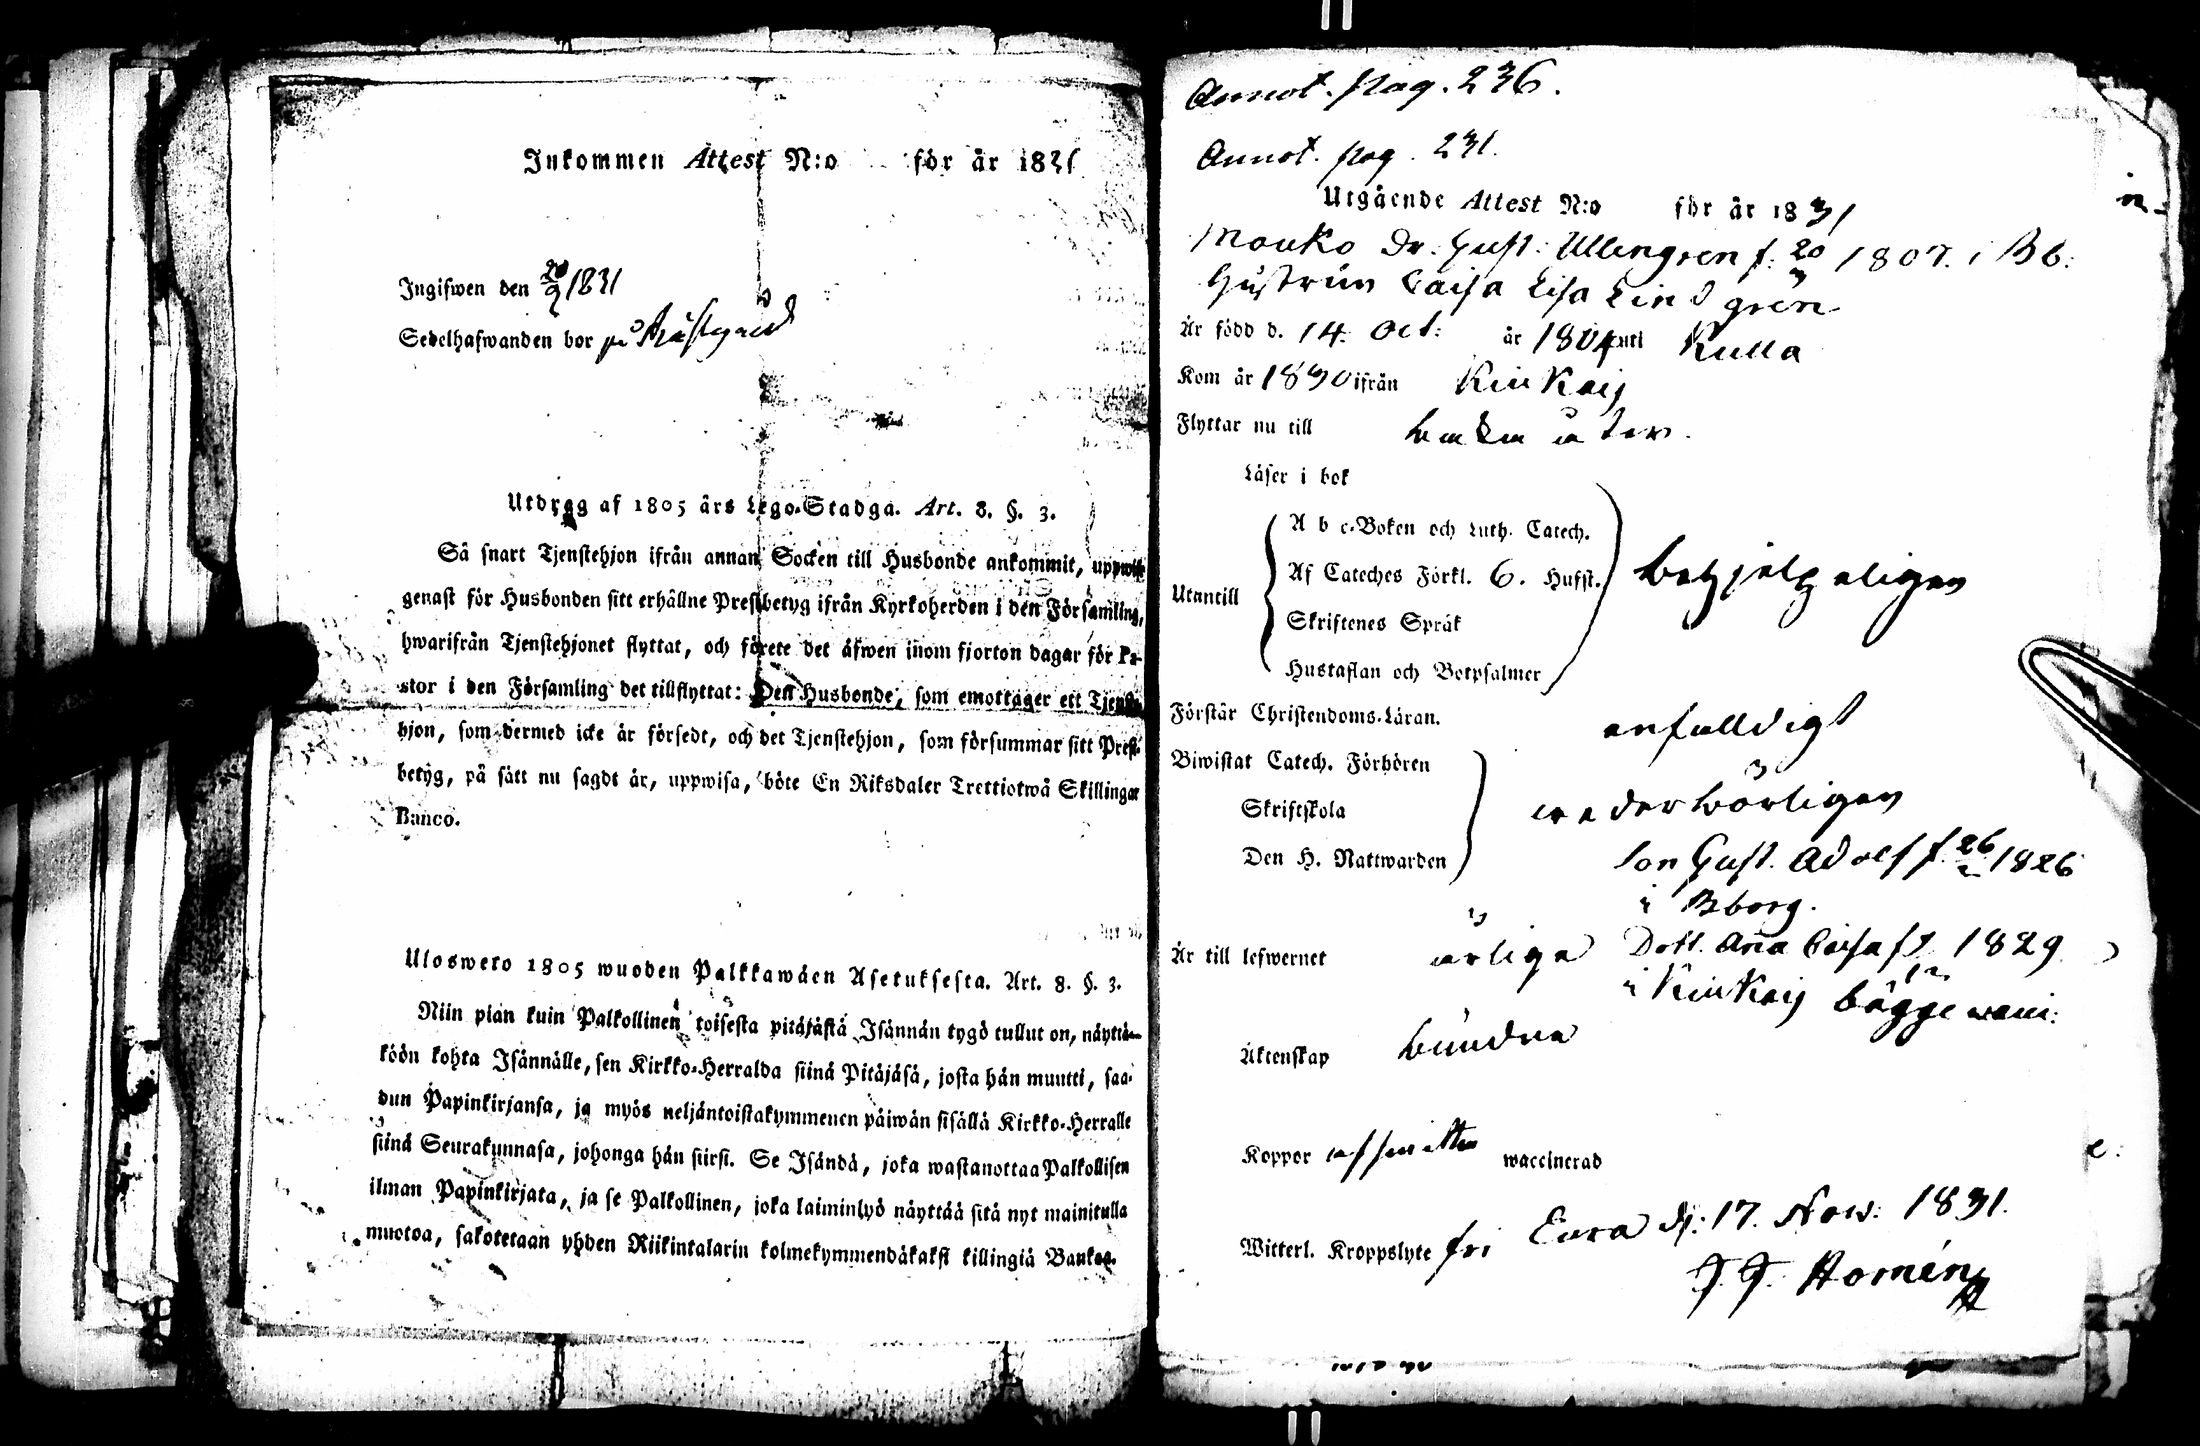 Inkommen Attest N:o för år 1831
Ingifwen den 20/9 1831
Sedelhafwanden bor på
Utdrag af 1805 års Lego-Stadga. Art. 8. §. 3.
Så snart Tjenstehjon ifrån annan Socken till Husbonde ankommit, uppwise
genast för Husbonden sitt erhållne Prestbetyg ifrån Kyrkoherden i den Församling,
hwarifrån Tjenstehjonet flyttat, och förete det äfwen inom fjorton dagar för Pa-
stor i den Församling det tillflyttat: Den Husbonde, som emottager ett Tjenste-
hjon, som dermed icke är försedt, och det Tjenstehjon, som försummar sitt Prest-
betyg, på sätt nu sagdt är, uppwisa, böte En Riksdaler Trettiotwå Skillingar
Banco.
Ulosweto 1805 wuoden Palkkawäen Asetuksesta. Art. 8. §. 3.
Niin pian kuin Palkollinen toisesta pitäjästä Isännän tygö tullut on, näyttä-
köön kohta Isännälle, sen Kirkko-Herralda siinä Pitäjäsä, josta hän muutti, saa-
dun Papinkirjansa, ja myös neljäntoistakymmenen päiwän sisällä Kirkko-Herralle
siinä Seurakunnasa, johonga hän siirsi. Se Isändä, joka wastanottaa Palkollisen
ilman Papinkirjata, ja se Palkollinen, joka laiminlyö näyttää sitä nyt mainitulla
muotoa, sakotetaan yhden Riikintalarin kolmekymmendäkaksi killingiä Bankoa.
Annot. pag. 236.
Annot. pag. 231.
Utgående Attest N:o för år 1831
Mouko Dr. Gust: Ullengren f. 20/3 1807. i Bb:
Hustrun Caisa Lisa Lindgrén
Är född d. 14. Oct: år 1804 uti Kulla
Kom år 1830 ifrån Kiukais
Flyttar nu till
Läser i bok
A b c-Boken och Luth. Catech.
Af Cateches Förkl. 6. Hufst.
Utantill
behjelpeligen
Skriftenes Språk
Hustaflan och Botpsalmer
Förstår Christendoms-Läran. enfalldigt
Biwistat Catech. Förhören
Skriftskola wederbörligen
Den H. Nattwarden
Son Gust. Adolf f. 26/2 1826
i Bborg.
Är till lefwernet ärliga
Dott. Ana Caisa f. 1829
i Kiukais bägge wacc:
Äktenskap bundne
Koppor afsmittn waccinerad
Witterl. Kroppslyte fri
Eura d: 17. Nov: 1831.
F. F. Homén